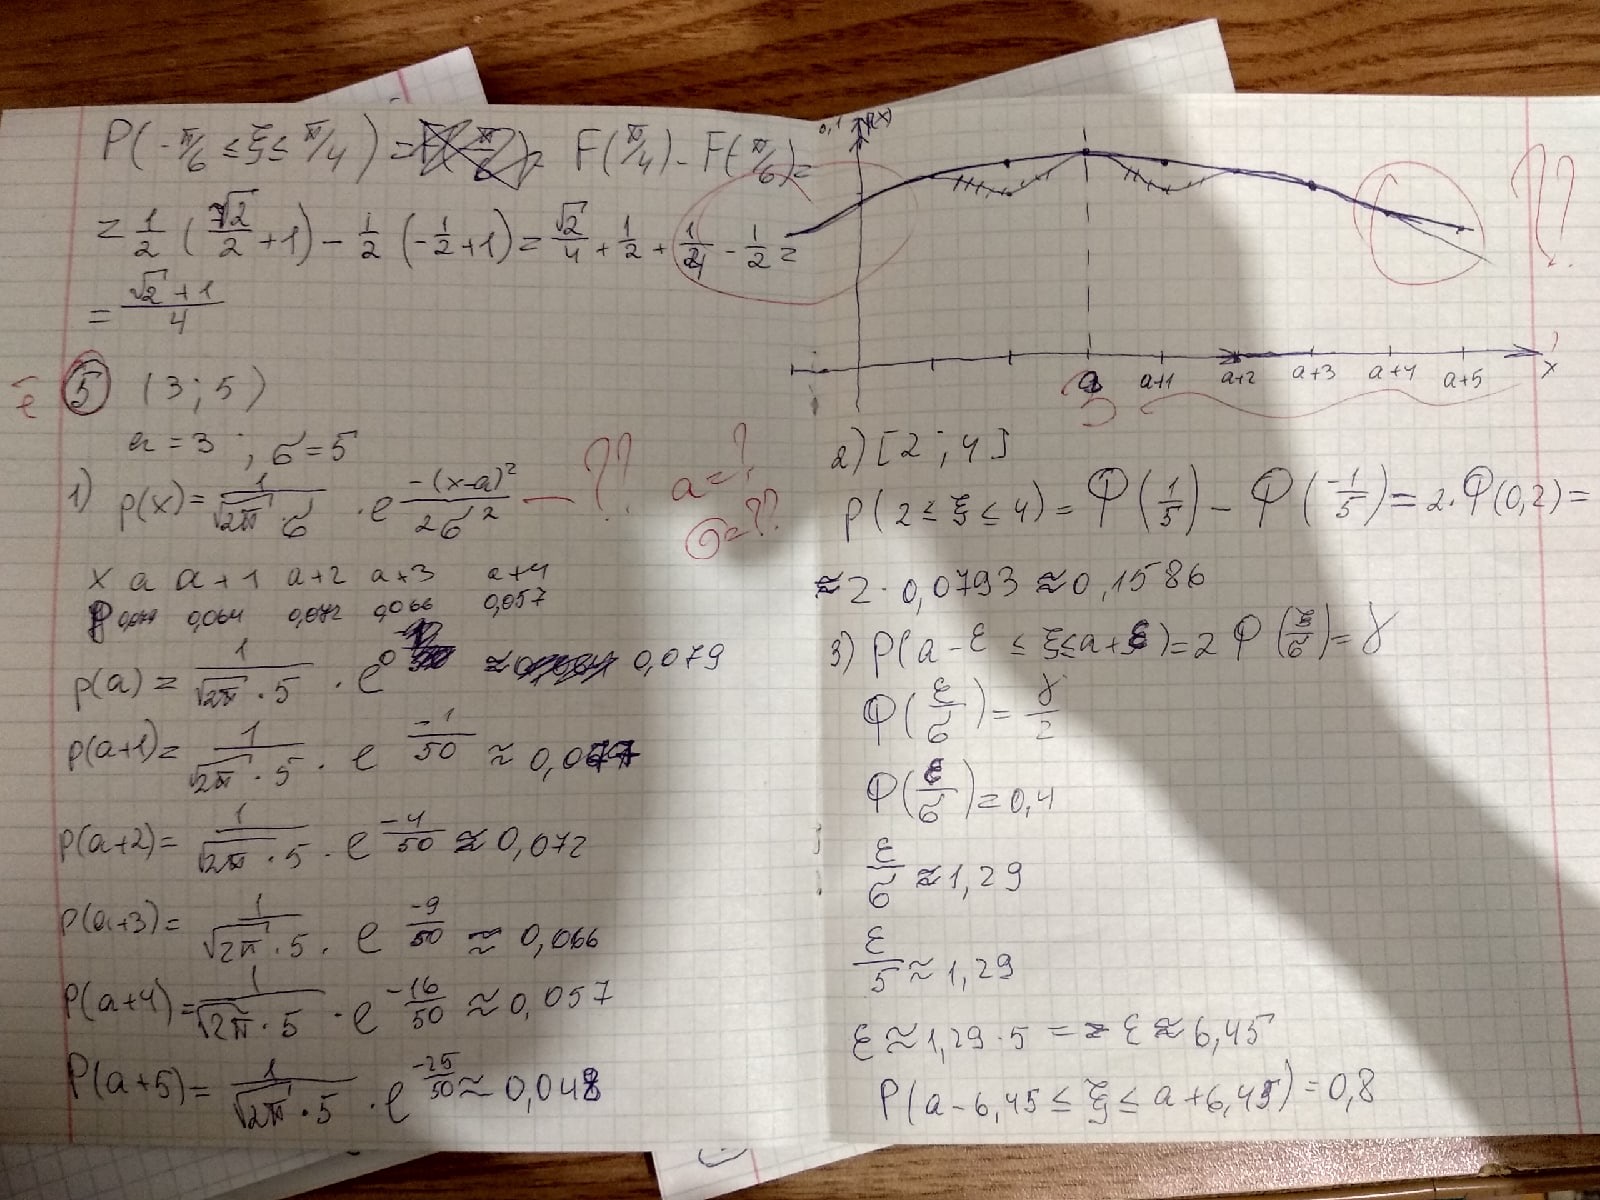 P(-π/6 ≤ ξ ≤ π/4) = F(π/4) - F(-π/6) =
= 1/2 (√2/2 + 1) - 1/2 (-1/2 + 1) = √2/4 + 1/2 + 1/4 - 1/2 =
= (√2 + 1)/4
5 (3; 5)
a = 3; σ = 5
1) p(x) = 1/(√2π · σ) · e^(-(x-a)²/2σ²) — ?? a = ? σ = ??
x a a+1 a+2 a+3 a+4
0,064 0,072 0,066 0,057
p(a) = 1/(√2π · 5) · e^0 ≈ 0,079
p(a+1) = 1/(√2π · 5) · e^(-1/50) ≈ 0,077
p(a+2) = 1/(√2π · 5) · e^(-4/50) ≈ 0,072
p(a+3) = 1/(√2π · 5) · e^(-9/50) ≈ 0,066
p(a+4) = 1/(√2π · 5) · e^(-16/50) ≈ 0,057
p(a+5) = 1/(√2π · 5) · e^(-25/50) ≈ 0,048
0,1 p(x) ??
a a+1 a+2 a+3 a+4 a+5 x
3
2) [2; 4]
p(2 ≤ ξ ≤ 4) = Φ(1/5) - Φ(-1/5) = 2·Φ(0,2) =
≈ 2 · 0,0793 ≈ 0,1586
3) p(a-ε ≤ ξ ≤ a+ε) = 2 Φ(ε/σ) = γ
Φ(ε/σ) = γ/2
Φ(ε/σ) = 0,4
ε/σ ≈ 1,29
ε/5 ≈ 1,29
ε ≈ 1,29 · 5 = ε ≈ 6,45
P(a - 6,45 ≤ ξ ≤ a + 6,45) = 0,8